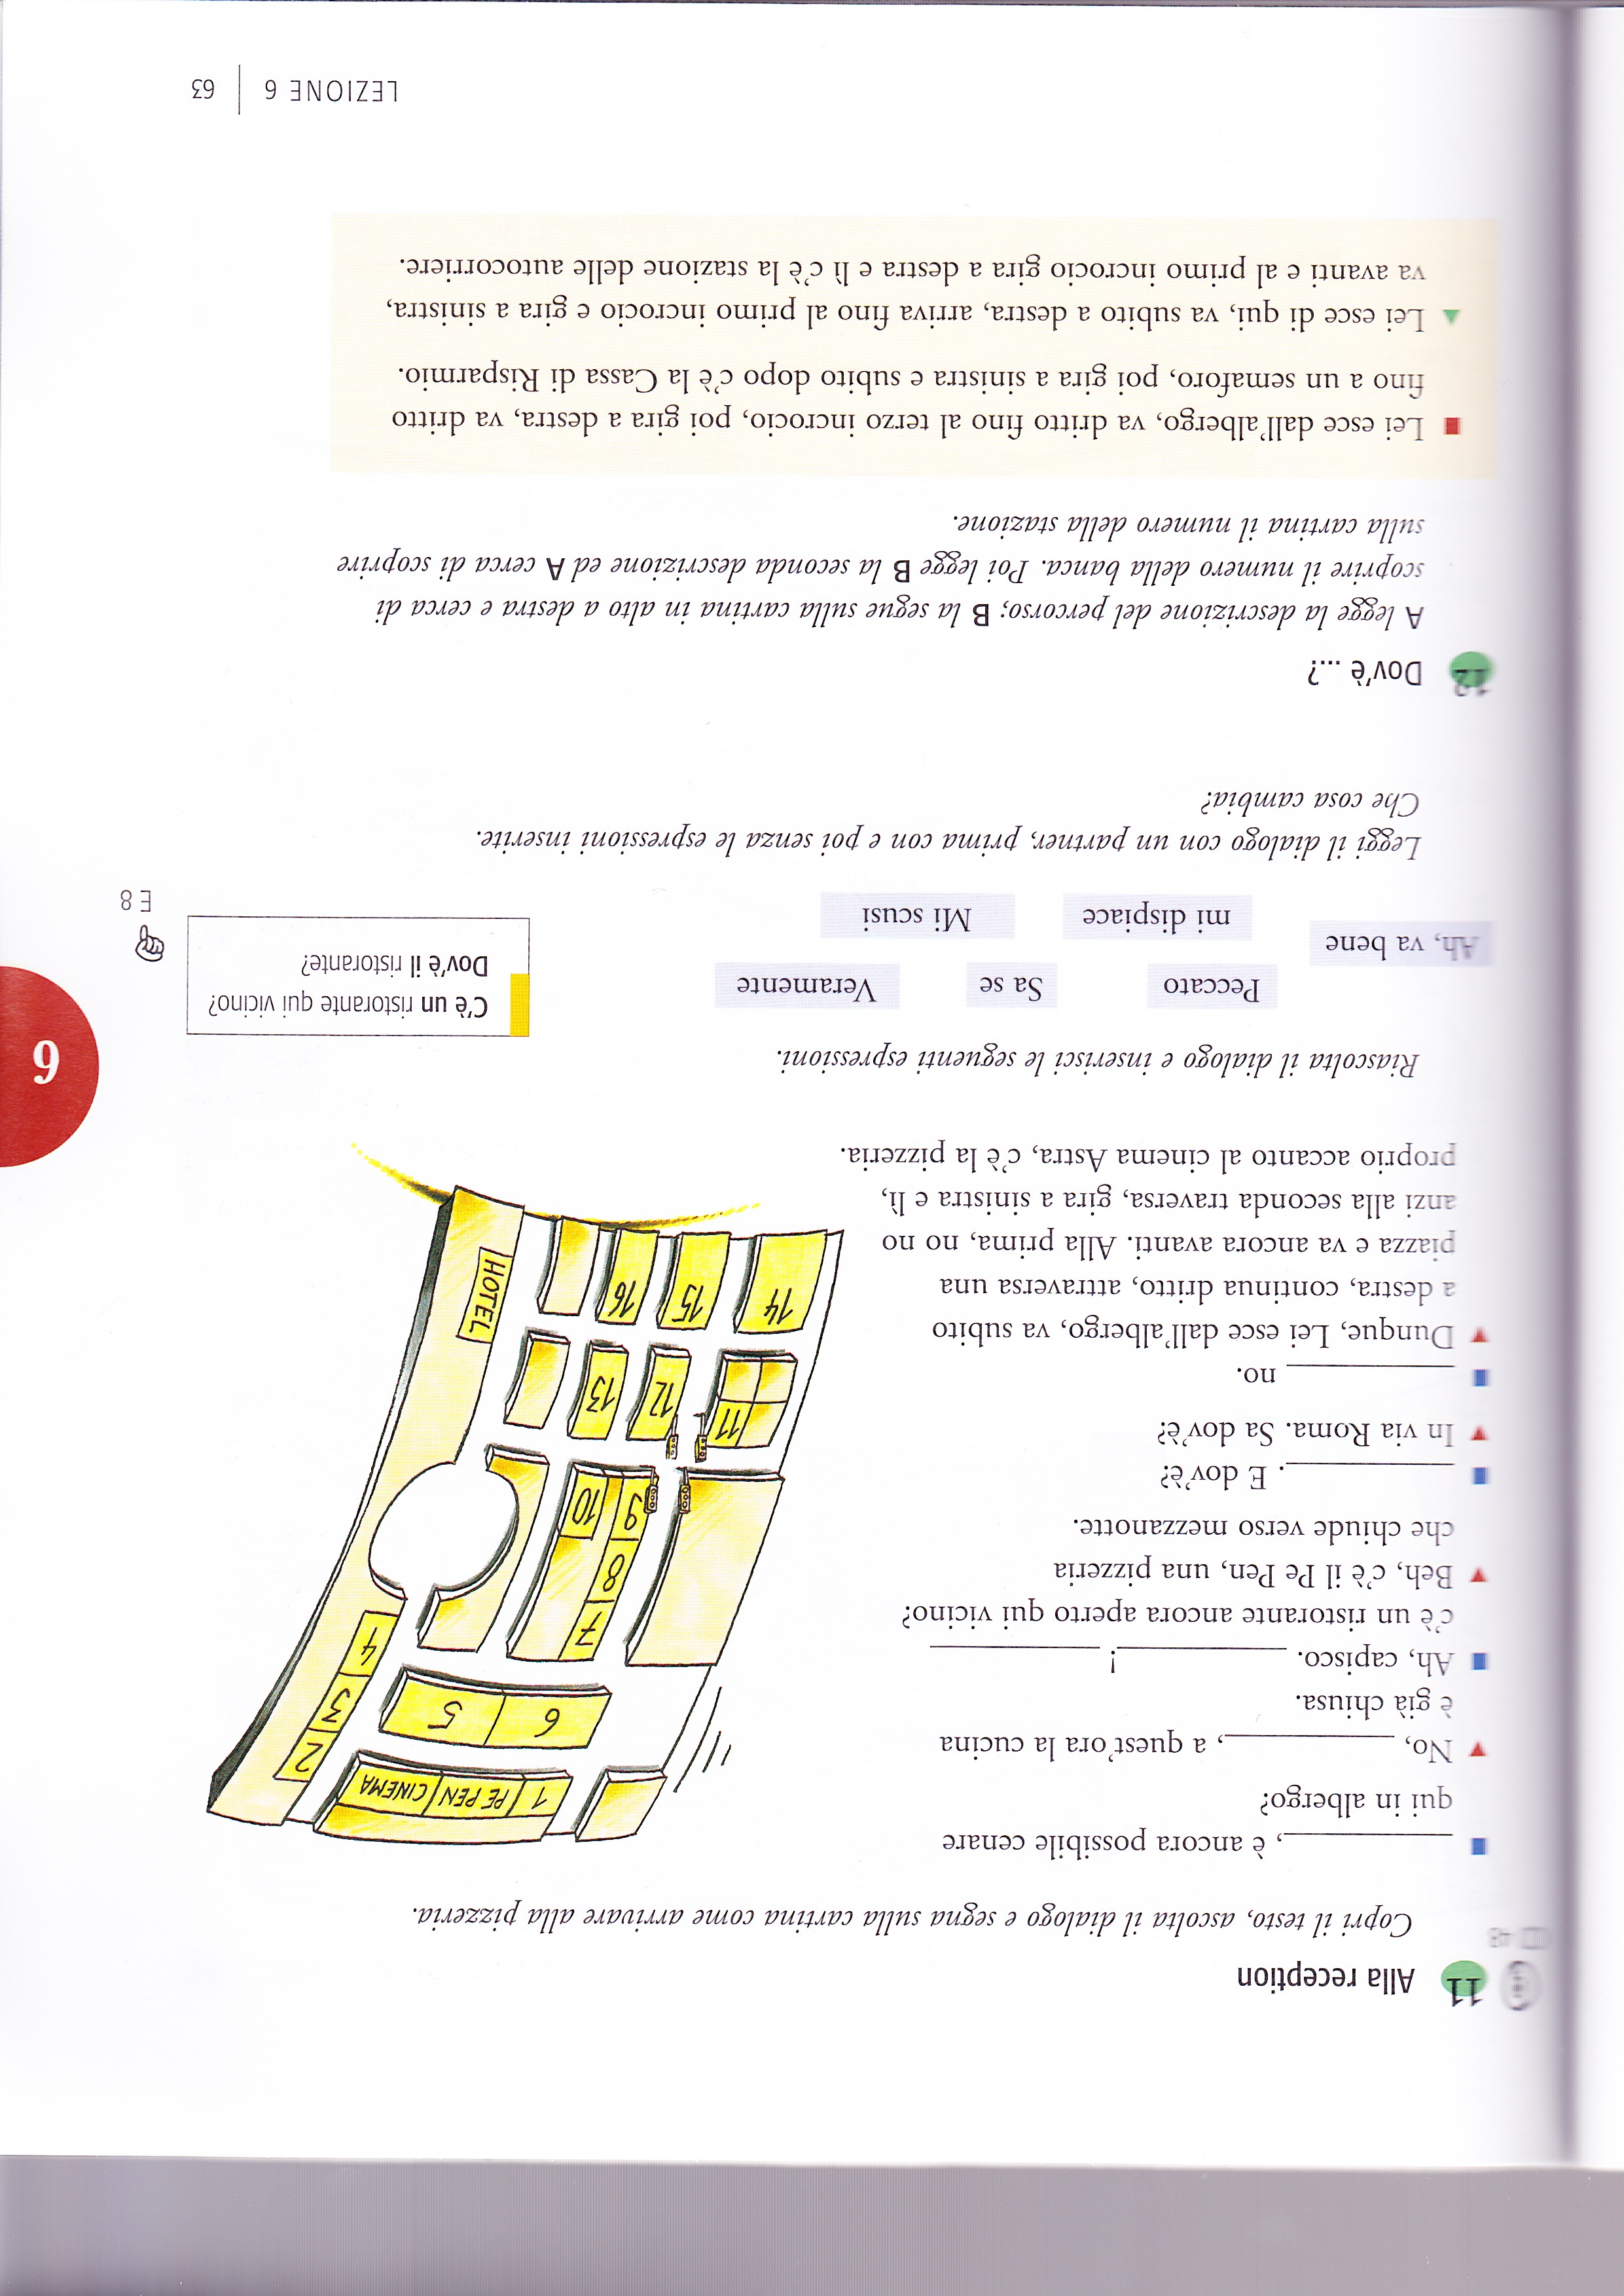 11 Alla reception
48
Copri il testo, ascolta il dialogo e segna sulla cartina come arrivare alla pizzeria.
____________, è ancora possibile cenare
qui in albergo?
No, ____________, a quest'ora la cucina
è già chiusa.
Ah, capisco. ____________! ____________
c'è un ristorante ancora aperto qui vicino?
Beh, c'è il Pe Pen, una pizzeria
che chiude verso mezzanotte.
____________. E dov'è?
In via Roma. Sa dov'è?
____________ no.
Dunque, Lei esce dall'albergo, va subito
a destra, continua dritto, attraversa una
piazza e va ancora avanti. Alla prima, no no
anzi alla seconda traversa, gira a sinistra e lì,
proprio accanto al cinema Astra, c'è la pizzeria.
1 PE PEN CINEMA
2
3
4
6 5
7
8
9 10
11 12 13
14 15 16
HOTEL
6
Riascolta il dialogo e inserisci le seguenti espressioni.
Peccato Sa se Veramente
Ah, va bene mi dispiace Mi scusi
C'è un ristorante qui vicino?
Dov'è il ristorante?
E 8
Leggi il dialogo con un partner, prima con e poi senza le espressioni inserite.
Che cosa cambia?
12 Dov'è ...?
A legge la descrizione del percorso; B la segue sulla cartina in alto a destra e cerca di
scoprire il numero della banca. Poi legge B la seconda descrizione ed A cerca di scoprire
sulla cartina il numero della stazione.
Lei esce dall'albergo, va dritto fino al terzo incrocio, poi gira a destra, va dritto
fino a un semaforo, poi gira a sinistra e subito dopo c'è la Cassa di Risparmio.
Lei esce di qui, va subito a destra, arriva fino al primo incrocio e gira a sinistra,
va avanti e al primo incrocio gira a destra e lì c'è la stazione delle autocorriere.
LEZIONE 6 63